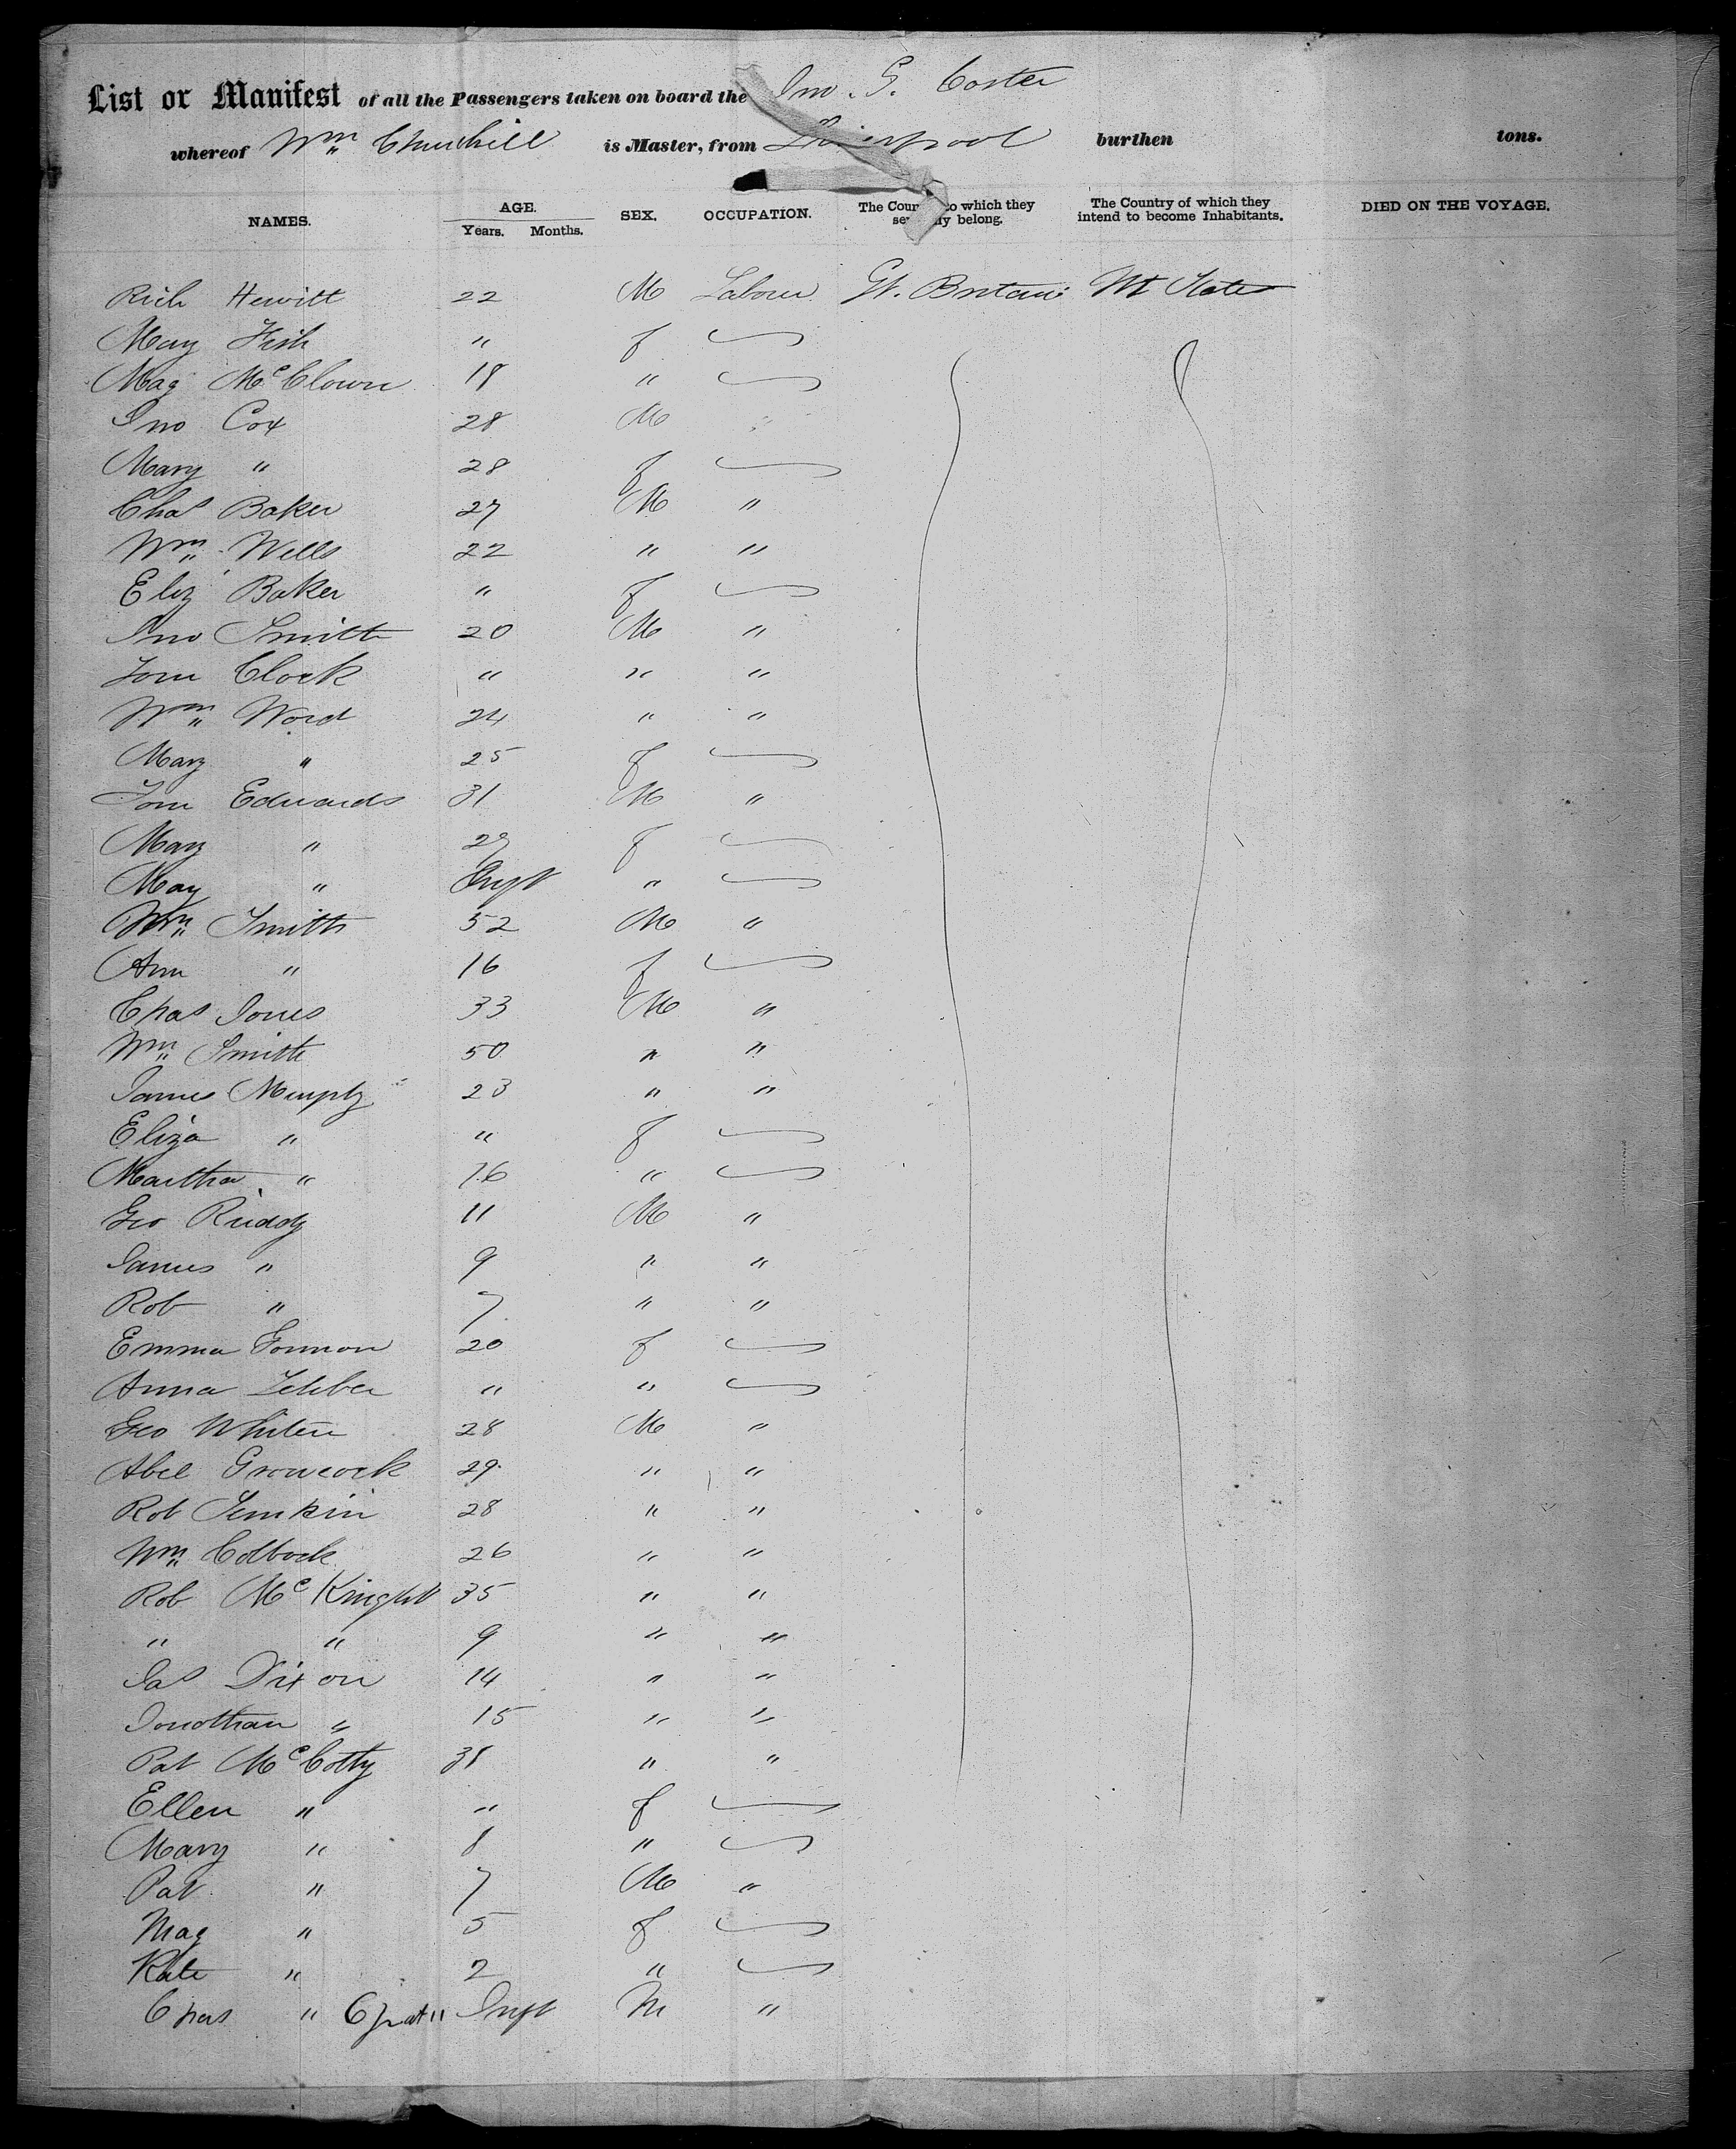 List or Manifest of all the Passengers taken on board the Jno. G. Coster
whereof Wm Churchill is Master, from Liverpool burthen tons.
NAMES. AGE. Years. Months. SEX. OCCUPATION. The Country to which they severally belong. The Country of which they intend to become Inhabitants. DIED ON THE VOYAGE.
Rich Hewitt 22 M Labour Gt. Britain Ut States
Mary Fish " f
Mag McClown 18 "
Jno Cox 28 M "
Mary " 28 f
Chas Baker 27 M "
Wm Wells 22 " "
Eliz Baker " f
Jno Smith 20 M "
Tom Clock " " "
Wm Word 24 " "
Mary " 25 f
Tom Edwards 31 M "
Mary " 29 f
May " Inft "
Wm Smith 52 M "
Ann " 16 f
Chas Jones 33 M "
Wm Smith 50 " "
James Murphy 23 " "
Eliza " " f
Martha " 16 "
Geo Ruddy 11 M "
James " 9 " "
Rob " 7 " "
Emma 20 f
Anna " "
Geo 28 M "
Abel Growcock 29 " "
Rob Jenkin 28 " "
Wm Colbock 26 " "
Rob McKnight 35 " "
" " 9 " "
Jas Dixon 14 " "
Jonothan " 15 " "
Pat McCotty 38 " "
Ellen " " f
Mary " 8 "
Pat " 7 M "
Mag " 5 f
Kate " 2 "
Chas " Inft M "